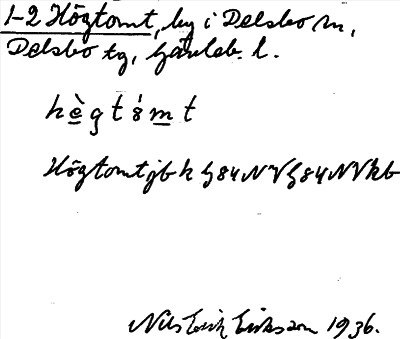 1-2 Högtomt, by i Delsbo sn,
Delsbo tg, Gävleb. l.
hègt8́mt
Högtomt jbk G84NV G84NVkb
Nils Erik Eriksson 1936.